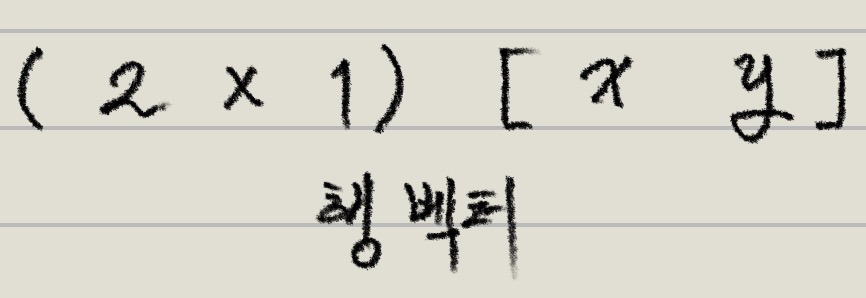 ( 2 × 1 ) [ x y ]
행 벡터